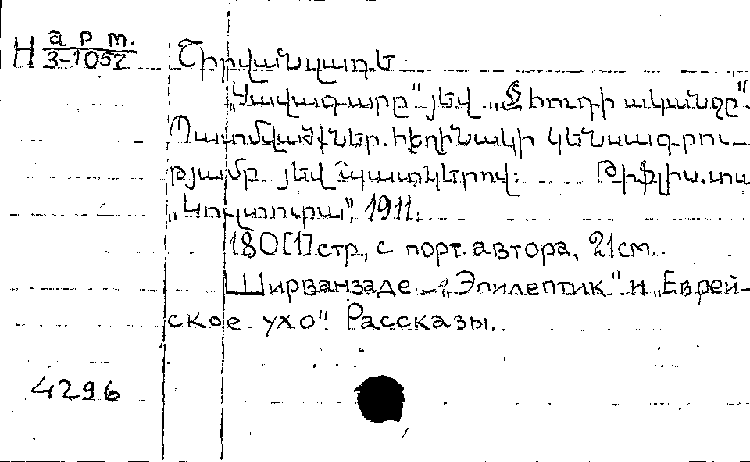 Н арт.
3-1052
Շիրվանզադե
„Կավագարը“ յեվ „Ջհուդի ականջը“.
Պատմվածքներ. հեղինակի կենսագրու-
թյամբ յեվ նկատկերով: Թիֆլիս. տպ
„Կուլտուրա“, 1911.
180[1]стр., с порт. автора, 21см.
Ширванзаде – „Эпилептик“ и „Еврей-
ское ухо“. Рассказы.
4296